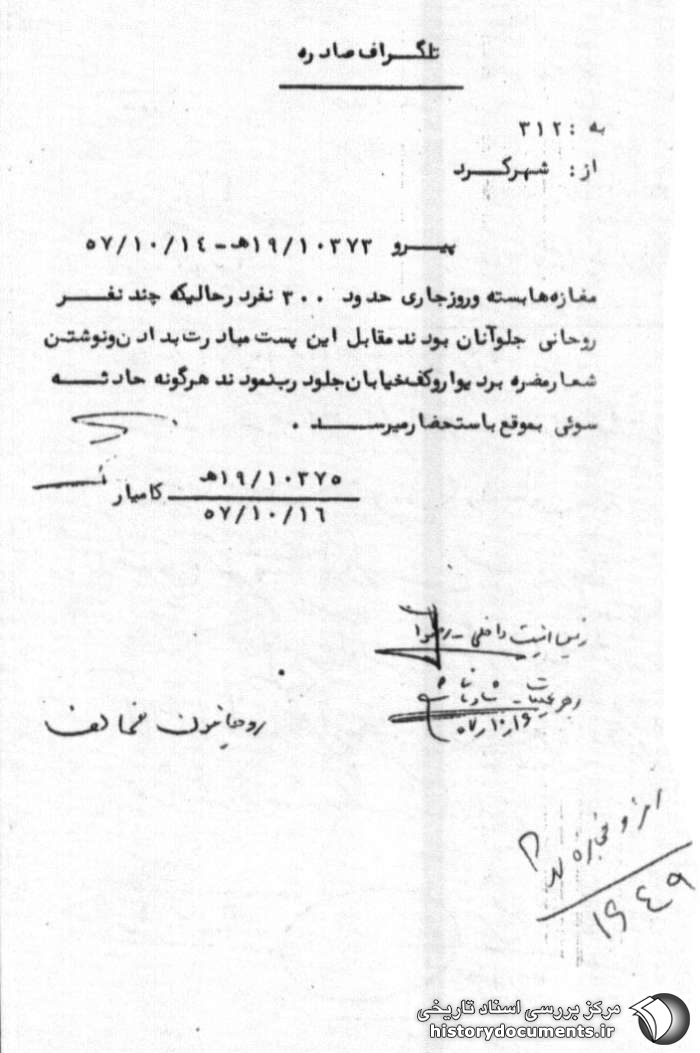 تلگراف صادره
به : ۳۱۲
از : شهرکرد
پیرو ۱۹/۱۰۳۷۳ه‍ - ۵۷/۱۰/۱۴
مغازه‌ها بسته وروز جاری حدود ۳۰۰ نفر درحالیکه چند نفر
روحانی جلو آنان بودند مقابل این پست مبادرت بدادن و نوشتن
شعار مضره بر دیوار و کف خیابان جلو درب نمودند هرگونه حادثه
سوئی بموقع باستحضار میرسد .
۱۹/۱۰۳۷۵ه‍
کامیار
۵۷/۱۰/۱۶
رئیس امنیت داخلی -
۵۷/۱۰/۱۶
روحانیون مخالف
۱۹۴۹
مرکز بررسی اسناد تاریخی
historydocuments.ir